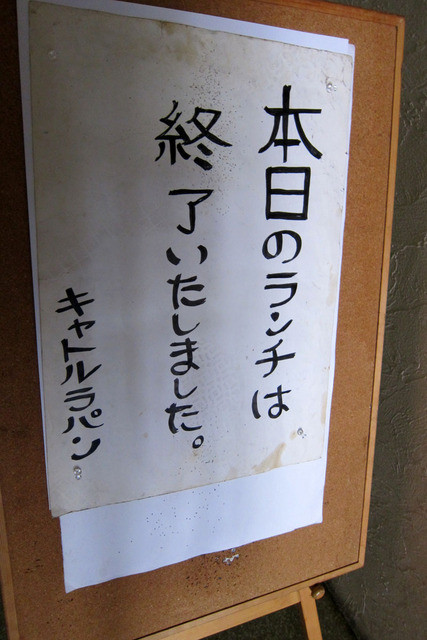 本日のランチは
終了いたしました。
キャトルラパン